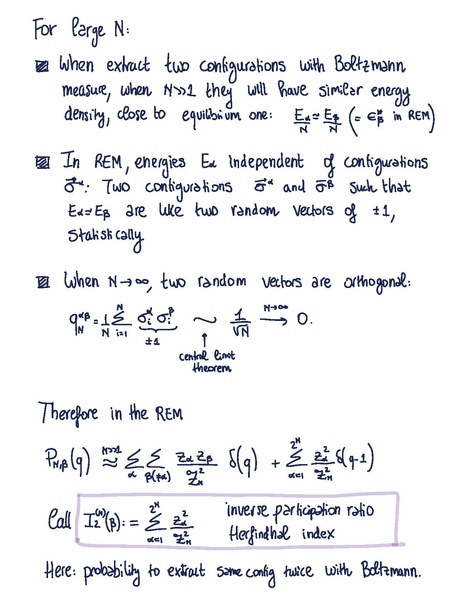 For large N:
When extract two configurations with Boltzmann
measure, when N>>1 they will have similar energy
density, close to equilibrium one: Eα/N ≃ Eβ/N (= ϵ*β in REM)
In REM, energies Eα independent of configurations
σ⃗^α: Two configurations σ⃗^α and σ⃗^β such that
Eα≃Eβ are like two random vectors of ±1,
statistically
When N→∞, two random vectors are orthogonal:
q_N^{αβ} = 1/N Σ_{i=1}^N σ_i^α σ_i^β ~ 1/√N →^{N→∞} 0.
±1
central limit
theorem
Therefore in the REM
P_{N,β}(q) ≈^{N>>1} Σ_α Σ_{β(≠α)} z_α z_β / Z_N^2 δ(q) + Σ_{α=1}^{2^N} z_α^2 / Z_N^2 δ(q-1)
Call I_2^{(N)}(β) := Σ_{α=1}^{2^N} z_α^2 / Z_N^2 inverse participation ratio
Herfindhal index
Here: probability to extract same config twice with Boltzmann.